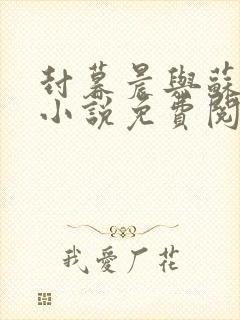 封幕晨與蘇
小說免費閱
我愛厂花